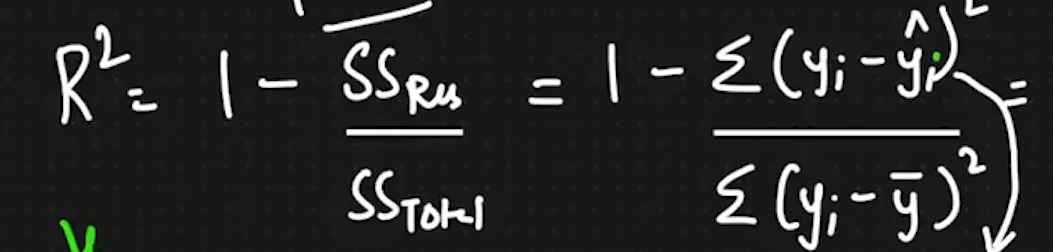 R² = 1 - SS_Res / SS_Total = 1 - Σ(yᵢ - ŷᵢ)² / Σ(yᵢ - ȳ)² =